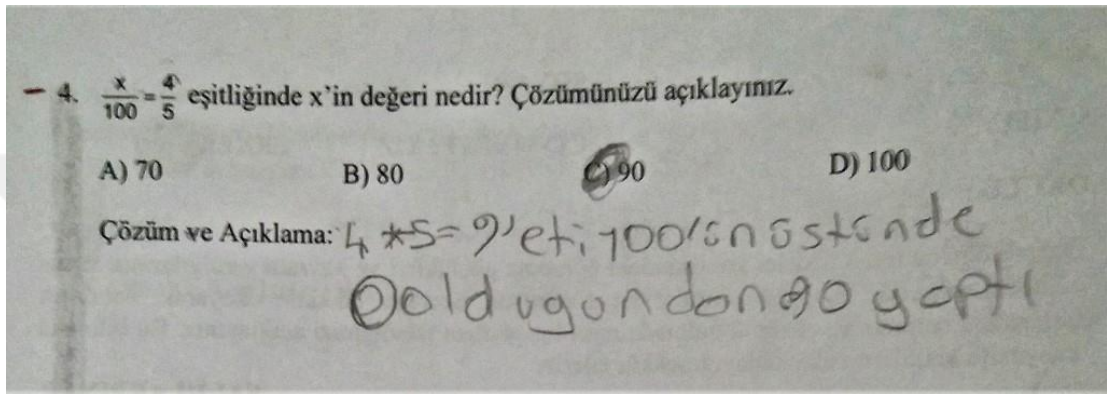 - 4. x/100 = 4/5 eşitliğinde x'in değeri nedir? Çözümünüzü açıklayınız.
A) 70 B) 80 C) 90 D) 100
Çözüm ve Açıklama: 4 *5=9'eti 100'ün üstünde
0 oldugundan 90 yaptı